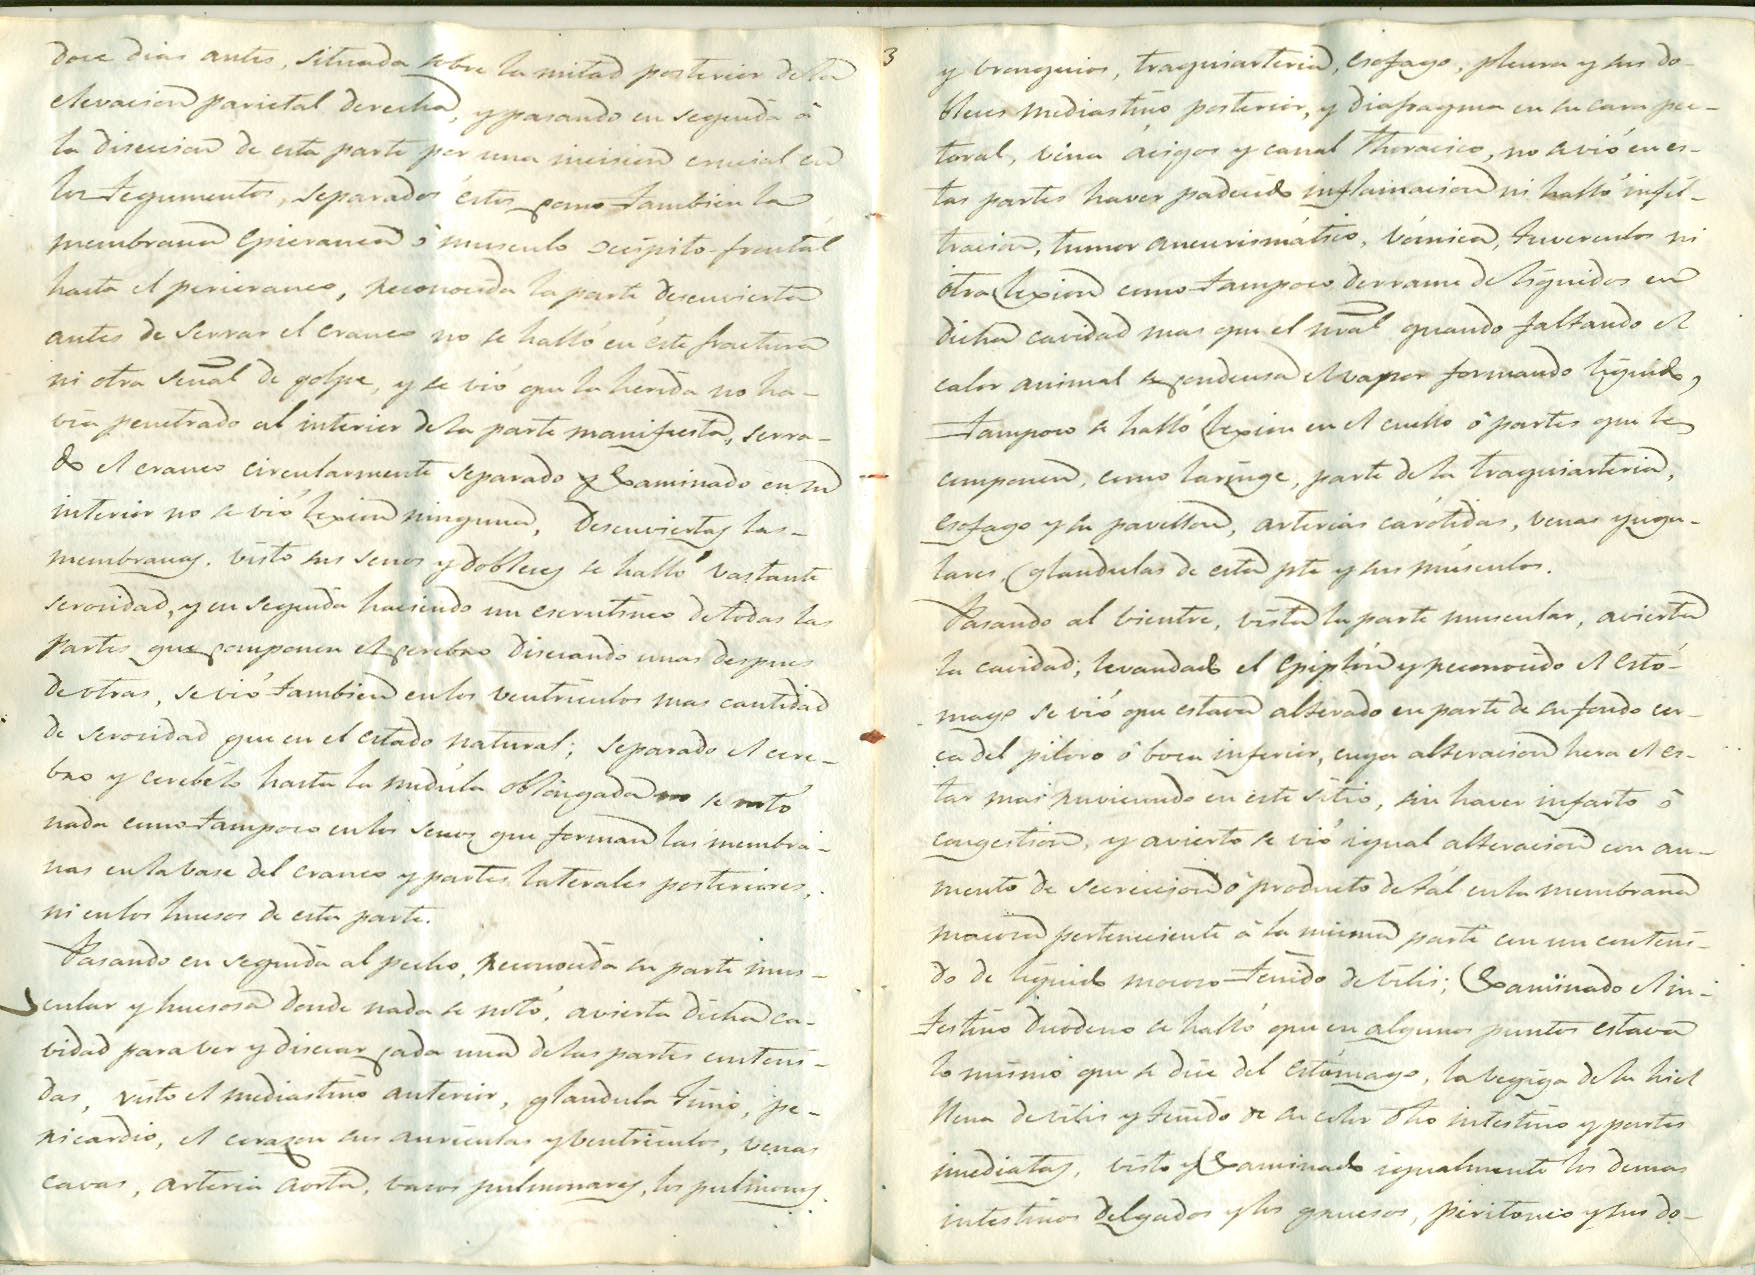 doce dias antes, situada sobre la mitad posterior de la
elevacion parietal derecha, y pasando en seguida â
la diseccion de esta parte por una incision crucial en
los tegumentos, separados éstos como tambien la
membrana epicranea ô musculo occipito-frontál
hasta el pericraneo, reconocida la parte descuvierta
antes de serrar el craneo no se halló en éste fractura
ni otra señal de golpe, y se vió que la herida no ha-
via penetrado al interior de la parte manifiesta, serra-
do el craneo circularmente separado y examinado en su
interior no se vió lexion ninguna. Descuviertas las-
membranas, visto sus senos y dobleces se halló vastante
serosidad, y en seguida haciendo un escrutinio de todas las
partes que componen el cerebro disecando unas despues
de otras, se vió tambien en los ventriculos mas cantidad
de serosidad que en el estado natural; separado el cere-
bro y cerebélo hasta la medúla oblongada no se notó
nada como tampoco en los senos que forman las membra-
nas en la vase del craneo y partes laterales posteriores,
ni en los huesos de esta parte.
Pasando en seguida al pecho, reconocida su parte mus-
cular y huesosa donde nada se notó, avierta dicha ca-
vidad para ver y disecar cada una de las partes conteni-
das, visto el mediastino anterior, glandula timo, pe-
ricardio, el corazon sus auriculas y ventriculos, venas
cavas, arteria aorta, vasos pulmonares, los pulmones
3
y bronquios, traquiarteria, esofago, pleura y sus do-
bleces mediastino posterior, y diafragma en su cara pec-
toral, vena ácigos y canal thoracico, no se vió en es-
tas partes haver padecido inflamacion ni halló infil-
tracion, tumor aneurismático, vómica, tuverculos ni
otra lexion como tampoco derrame de liquidos en
dicha cavidad mas que el nral quando faltando el
calor animal se condensa el vapor formando liquido,
tampoco se halló lexion en el cuello ô partes que le
componen, como laringe, parte de la traquiarteria,
esofago y su pavellon, arterias carótidas, venas yugu-
lares, glandulas de esta pte y sus músculos.
Pasando al vientre, vista la parte muscular, avierta
la cavidad, levandado el epiplón y reconocido el estó-
mago se vió que estava alterado en parte de su fondo cer-
ca del piloro ô boca inferior, cuya alteracion hera el es-
tar mas ruvicundo en este sitio, sin haver infarto ô
congestion, y avierto se vió igual alteracion con au-
mento de secreccion ô producto de tál en la membrana
mocosa perteneciente â la misma parte con un conteni-
do de liquido mocoso teñido de vilis; Examinado el in-
testino duodeno se halló que en algunos puntos estava
lo mismo que se dice del estómago, la vegiga de la hiel
llena de vilis y teñido de su color dho intestino y partes
imediatas, visto y examinado igualmente los demas
intestinos delgados y los gruesos, peritoneo y sus do-